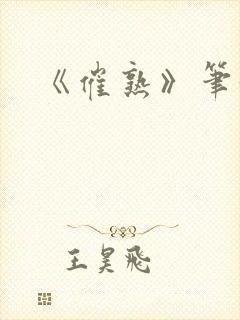 《催熟》筆
王昊飛